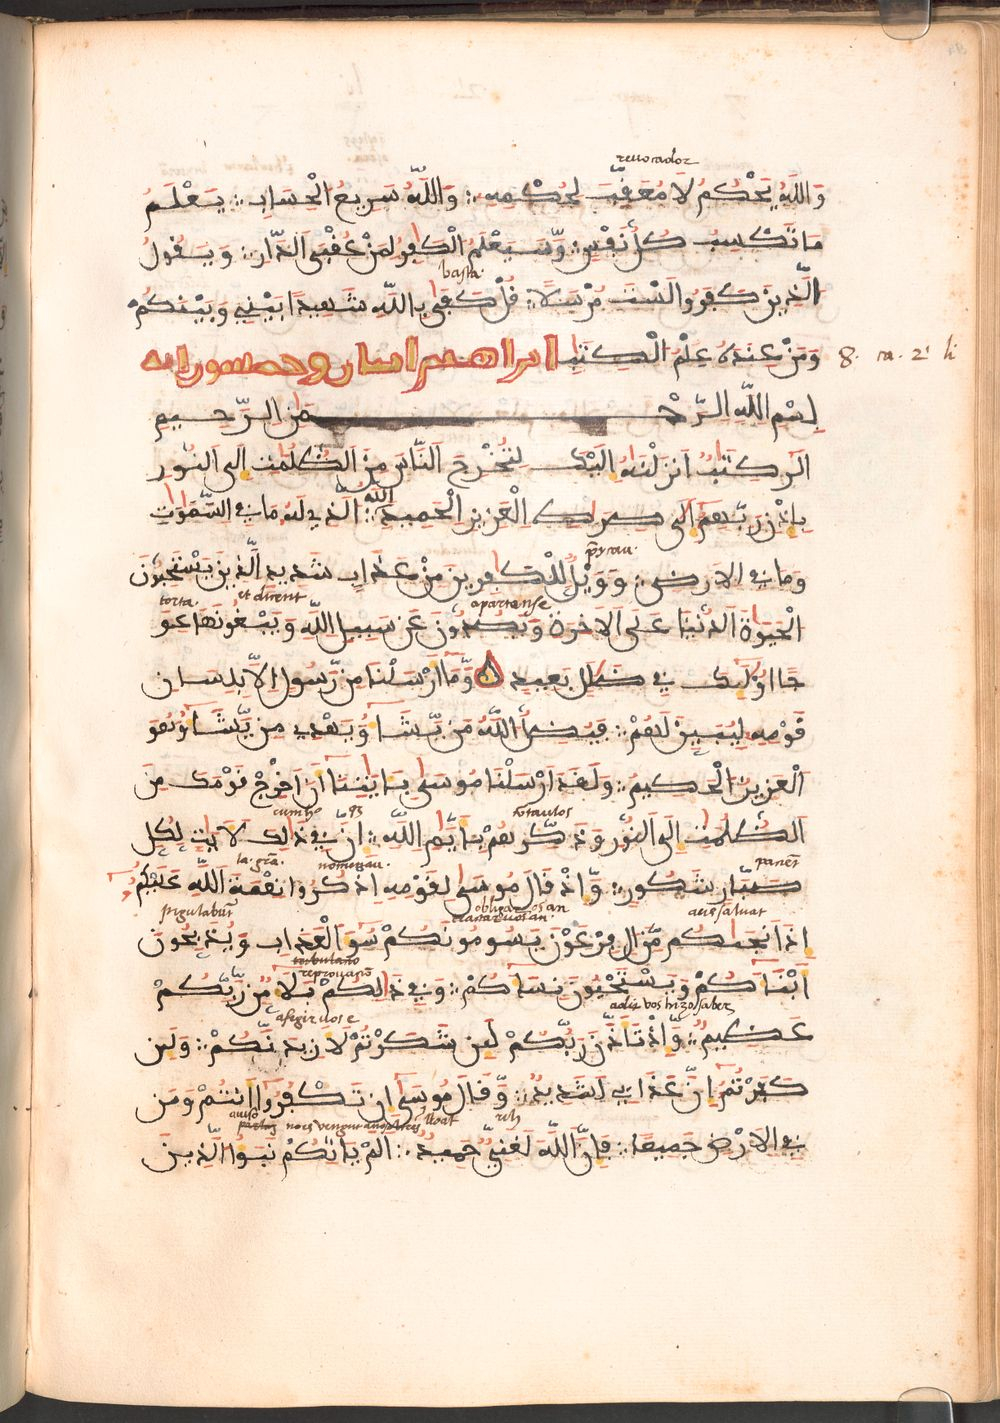 revocador
وَاللَّهُ يَحْكُمُ لَا مُعَقِّبَ لِحُكْمِهِ وَاللَّهُ سَرِيعُ الْحِسَابِ يَعْلَمُ
مَا تَكْسِبُ كُلُّ نَفْسٍ وَّسَيَعْلَمُ الْكَافِرُ لِمَنْ عُقْبَى الدَّارِ وَيَقُولُ
basta
الَّذِينَ كَفَرُوا لَسْتَ مُرْسَلًا قُلْ كَفَى بِاللَّهِ شَهِيدًا بَيْنِي وَبَيْنَكُمْ
وَمَنْ عِنْدَهُ عِلْمُ الْكِتَبِ ابراهيم اثنان وخمسون ايه
8. ca. 2i li
بِسْمِ اللَّهِ الرَّحْمَنِ الرَّحِيمِ
الَر كِتَبٌ انزَلْنَهُ الَيْكَ لِتُخْرِجَ النَّاسَ مِنَ الظُّلُمَتِ الَى النُّورِ
بِاذْنِ رَبِّهِمُ الَى صِرَاطِ الْعَزِيزِ الْحَمِيدِ اللَّهُ الَّذِي لَهُ مَا فِي السَّمَوَتِ
وَمَا فِي الَارْضِ وَوَيْلٌ لِّلْكَفِرِينَ مِنْ عَذَابٍ شَدِيدٍ الَّذِينَ يَسْتَحِبُّونَ
torta et dizent apartanse
الْحَيَوةَ الدُّنْيَا عَلَى الَاخِرَةِ وَيَصُدُّونَ عَن سَبِيلِ اللَّهِ وَيَبْغُونَهَا عِوَ
جًا اوْلَئِكَ فِي ضَلَلٍ بَعِيدٍ وَّمَا ارْسَلْنَا مِن رَّسُولٍ الَّا بِلِسَانِ
قَوْمِهِ لِيُبَيِّنَ لَهُمْ فَيُضِلُّ اللَّهُ مَن يَّشَا وَيَهْدِي مَن يَّشَا وَهُوَ
الْعَزِيزُ الْحَكِيمُ وَلَقَدَ ارْسَلْنَا مُوسَى بِايَتِنَا أَنَ اخْرِجْ قَوْمَكَ مِنَ
الظُّلُمَتِ الَى النُّورِ وَذَكِّرْهُمْ بِايَّمِ اللَّهِ انَّ فِي ذَلِكَ لَايَتٍ لِّكُلِّ
la grã. nomenrau
صَبَّارٍ شَكُورٍ وَّاذْ قَالَ مُوسَى لِقَوْمِهِ اذْكُرُوا نِعْمَةَ اللَّهِ عَلَيْكُمُ
اذَ انجَيكُم مِّنَ الِ فِرْعَوْنَ يَسُومُونَكُمْ سُو الْعَذَابِ وَيُذَبِّحُونَ
ابْنَاكُمْ وَيَسْتَحْيُونَ نِسَاكُمْ وَفِي ذَلِكُمْ بَلَا مِّن رَّبِّكُمْ
afegir vos e
عَظِيمٌ وَّاذْ تَاذَّنَ رَبُّكُمْ لَئِن شَكَرْتُمْ لَازِيدَنَّكُمْ وَلَئِن
كَفَرْتُمُ انَّ عَذَابِي لَشَدِيدٌ وَّقَالَ مُوسَى ان تَكْفُرُوا انتُمْ وَمَن
فِي الَارْضِ جَمِيعًا فَانَّ اللَّهَ لَغَنِيٌّ حَمِيدٌ الَمْ يَاتِكُمْ نَبَؤُا الَّذِينَ